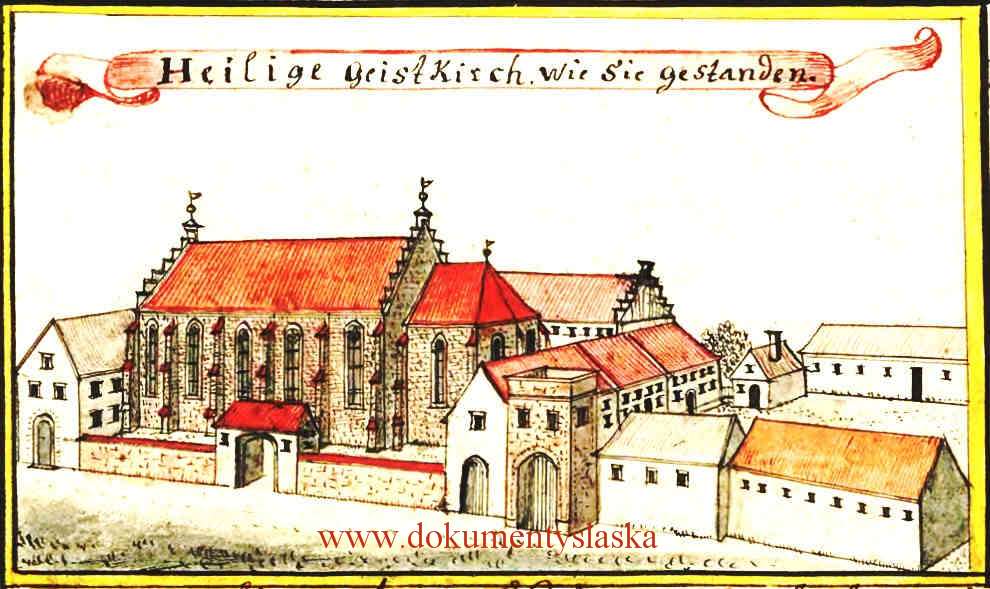 Heilige Geist Kirch. wie Sie gestanden.
www.dokumentyslaska